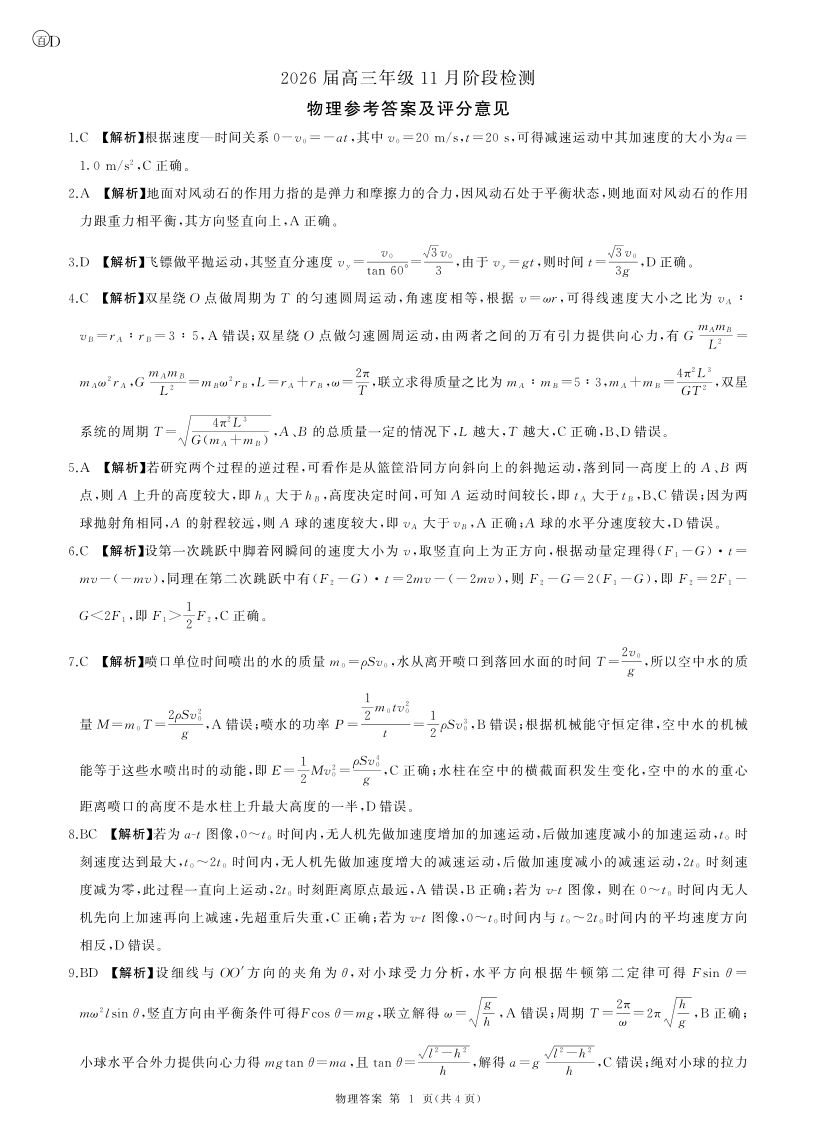 百D
2026 届高三年级 11 月阶段检测
物理参考答案及评分意见
1.C 【解析】根据速度—时间关系 0－v₀＝－at,其中 v₀＝20 m/s,t＝20 s,可得减速运动中其加速度的大小为a＝
1.0 m/s²,C 正确。
2.A 【解析】地面对风动石的作用力指的是弹力和摩擦力的合力,因风动石处于平衡状态,则地面对风动石的作用
力跟重力相平衡,其方向竖直向上,A 正确。
3.D 【解析】飞镖做平抛运动,其竖直分速度 v_y＝v₀/tan 60°＝√3v₀/3,由于 v_y＝gt,则时间 t＝√3v₀/3g,D 正确。
4.C 【解析】双星绕 O 点做周期为 T 的匀速圆周运动,角速度相等,根据 v＝ωr,可得线速度大小之比为 v_A∶
v_B＝r_A∶r_B＝3∶5,A 错误;双星绕 O 点做匀速圆周运动,由两者之间的万有引力提供向心力,有 G m_Am_B/L²＝
m_Aω²r_A,G m_Am_B/L²＝m_Bω²r_B,L＝r_A＋r_B,ω＝2π/T,联立求得质量之比为 m_A∶m_B＝5∶3,m_A＋m_B＝4π²L³/GT²,双星
系统的周期 T＝√(4π²L³/G(m_A＋m_B)),A、B 的总质量一定的情况下,L 越大,T 越大,C 正确,B、D 错误。
5.A 【解析】若研究两个过程的逆过程,可看作是从篮筐沿同方向斜向上的斜抛运动,落到同一高度上的 A、B 两
点,则 A 上升的高度较大,即 h_A 大于 h_B,高度决定时间,可知 A 运动时间较长,即 t_A 大于 t_B,B、C 错误;因为两
球抛射角相同,A 的射程较远,则 A 球的速度较大,即 v_A 大于 v_B,A 正确;A 球的水平分速度较大,D 错误。
6.C 【解析】设第一次跳跃中脚着网瞬间的速度大小为 v,取竖直向上为正方向,根据动量定理得(F₁－G)·t＝
mv－(－mv),同理在第二次跳跃中有(F₂－G)·t＝2mv－(－2mv),则 F₂－G＝2(F₁－G),即 F₂＝2F₁－
G＜2F₁,即 F₁＞1/2F₂,C 正确。
7.C 【解析】喷口单位时间喷出的水的质量 m₀＝ρSv₀,水从离开喷口到落回水面的时间 T＝2v₀/g,所以空中水的质
量 M＝m₀T＝2ρSv₀²/g,A 错误;喷水的功率 P＝(1/2 m₀tv₀²)/t＝1/2ρSv₀³,B 错误;根据机械能守恒定律,空中水的机械
能等于这些水喷出时的动能,即 E＝1/2Mv₀²＝ρSv₀⁴/g,C 正确;水柱在空中的横截面积发生变化,空中的水的重心
距离喷口的高度不是水柱上升最大高度的一半,D 错误。
8.BC 【解析】若为 a-t 图像,0～t₀ 时间内,无人机先做加速度增加的加速运动,后做加速度减小的加速运动,t₀ 时
刻速度达到最大,t₀～2t₀ 时间内,无人机先做加速度增大的减速运动,后做加速度减小的减速运动,2t₀ 时刻速
度减为零,此过程一直向上运动,2t₀ 时刻距离原点最远,A 错误,B 正确;若为 v-t 图像, 则在 0～t₀ 时间内无人
机先向上加速再向上减速,先超重后失重,C 正确;若为 v-t 图像,0～t₀时间内与 t₀～2t₀时间内的平均速度方向
相反,D 错误。
9.BD 【解析】设细线与 OO′方向的夹角为 θ,对小球受力分析,水平方向根据牛顿第二定律可得 Fsin θ＝
mω²lsin θ,竖直方向由平衡条件可得Fcos θ＝mg,联立解得 ω＝√(g/h),A 错误;周期 T＝2π/ω＝2π√(h/g),B 正确;
小球水平合外力提供向心力得 mgtan θ＝ma,且 tan θ＝√(l²－h²)/h,解得 a＝g √(l²－h²)/h,C 错误;绳对小球的拉力
物理答案 第 1 页(共 4 页)